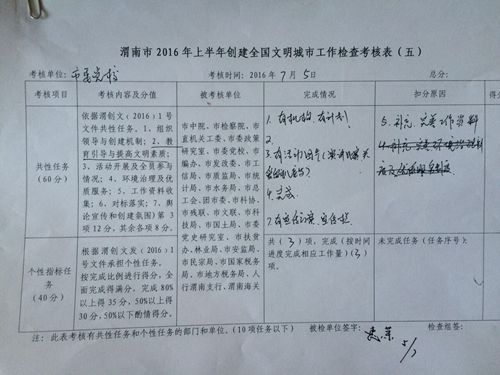 渭南市 2016 年上半年创建全国文明城市工作检查考核表（五）
考核单位：市委党校 考核时间：2016 年 7 月 5 日 总分：
考核项目 考核内容及分值 被考核单位 完成情况 扣分原因
共性任务
（60 分）
依据渭创文（2016）1 号
文件共性任务。1、组织
领导与创建机制；2、教
育引导与提高文明素质；
3、活动开展及全员参与
情况；4、环境治理及优
质服务；5、工作资料收
集；6、对标落实；7、舆
论宣传和创建氛围）第 3
项 12 分，其余各项 8 分。
市中院、市检察院、市
直机关工委、市委政策
研究室、市委党校、市
编办、市发改委、市工
信局、市质监局、市统
计局、市水务局、市总
工会、团市委、市科协、
市残联、市文联、市科
技局、市国土局、市委
党史研究室、市扶贫
办、林业局、市安监局、
市民宗局、市国家税务
局、市地方税务局、人
行渭南支行、渭南海关
1、有机构，有计划
2、
3、有活动图片
4、
7、有宣传
5、补充、完善工作资料
个性指标任
务
（40 分）
依据渭创文发（2016）1
号文件承担个性任务。
按完成比例进行得分，全
面完成得满分，完成 80%
以上得 35 分，50%以上得
30 分，50%以下酌情得分。
共（3）项，完成（按时间
进度完成相应工作量）（3）
项。
未完成任务（任务序号）：
注：此表考核有共性任务和个性任务的部门和单位。（10 项任务以下） 被检单位签字： 检查组签：
5/7